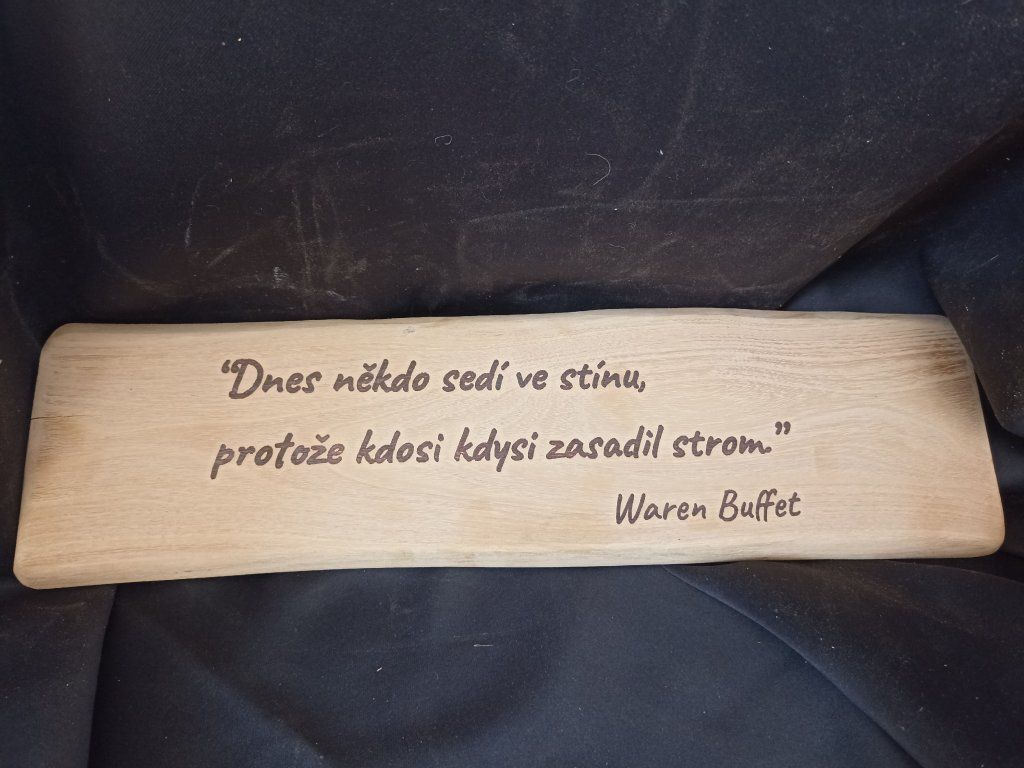 “Dnes někdo sedí ve stínu,
protože kdosi kdysi zasadil strom.”
Waren Buffet